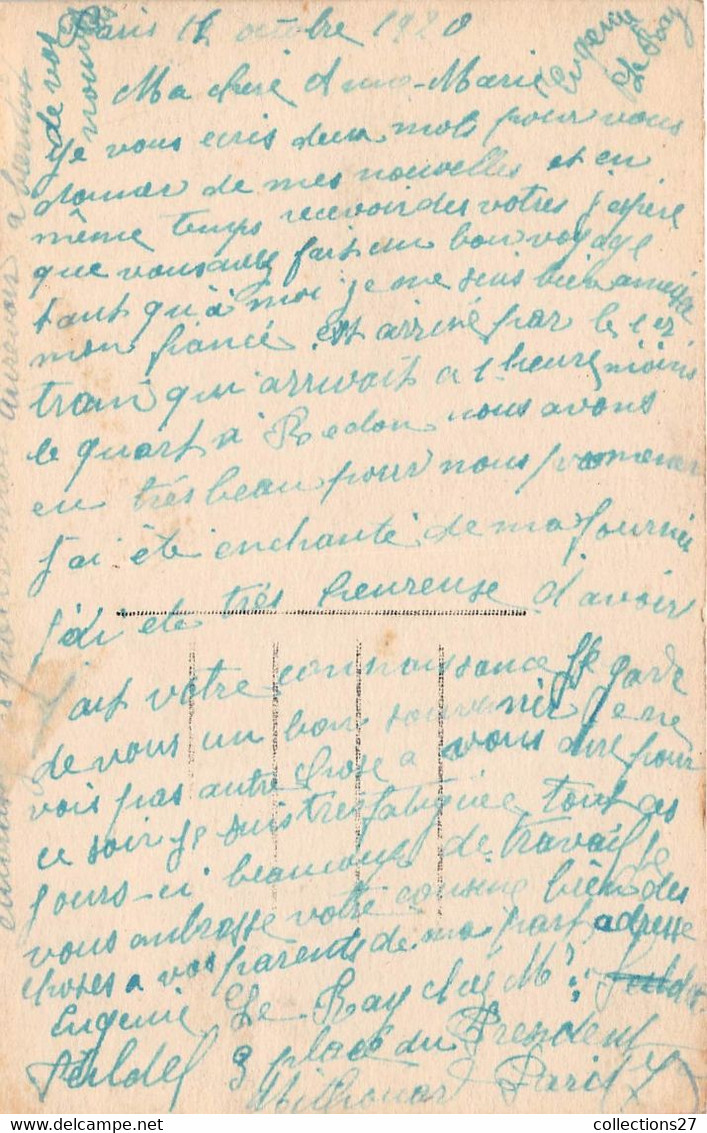 Paris 11 octobre 1920
Ma chere Anne-Marie
Je vous ecris deux mots pour vous
donner de mes nouvelles et en
même temps recevoir des votres j'espère
que vous avez fait un bon voyage
tant qu'à moi je me suis bien amusée
mon fiancé est arrivé par le 1er
train qui arrivait a 1 heure moins
le quart a Redon nous avons
eu très beau pour nous promener
J'ai été enchanté de ma journée
j'ai été très heureuse d'avoir
fait votre connaissance Je garde
de vous un bon souvenir Je ne
vois pas autre chose a vous dire pour
ce soir je suis tres fatiguée tout ces
jours-ci beaucoup de travail Je
vous embrasse votre cousine bien des
choses a vos parents de ma part adresse
Eugenie Le Ray chez Mr
3 place du President
Mithouard Paris (7)
Eugenie
Le Ray
de vos
nouvelles
au revoir a bientot
collections27